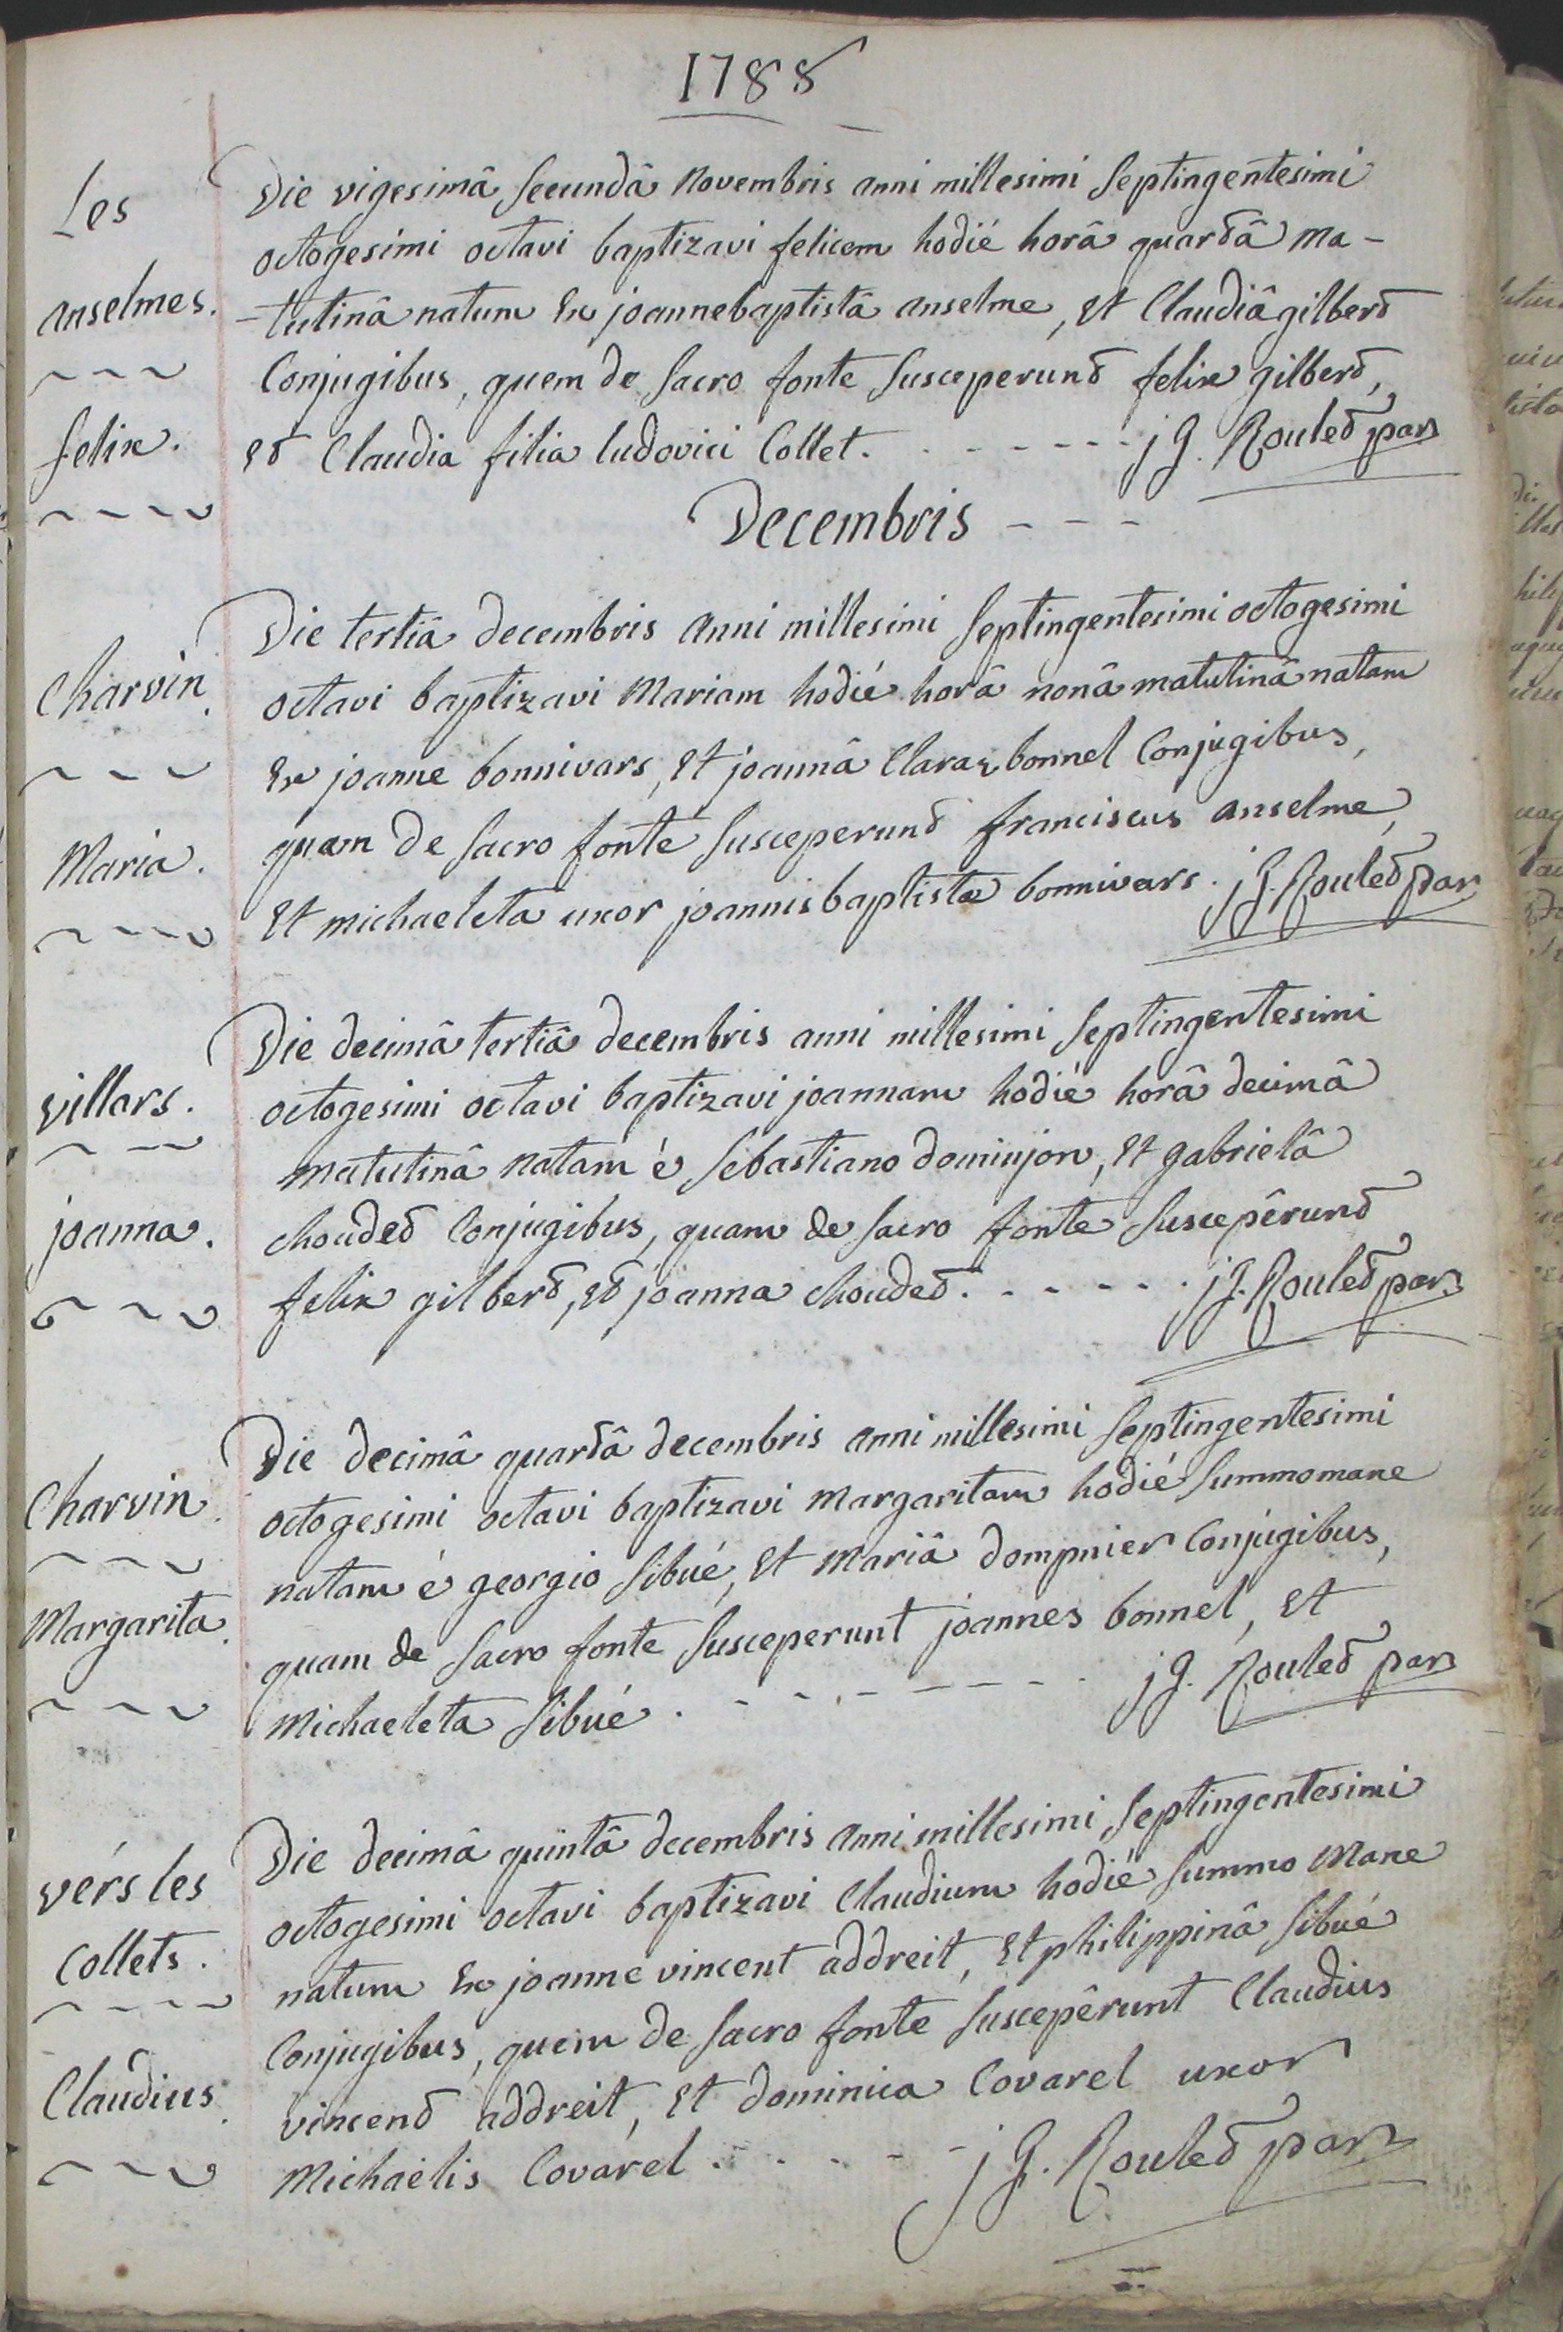 1788
Les
anselmes.
felix.
Die vigesimâ secundâ novembris anni millesimi septingentesimi
octogesimi octavi baptizavi felicem hodiè horâ quartâ ma-
-tutinâ natum ex joannebaptistâ anselme, et Claudiâ gilbert
Conjugibus, quem de sacro fonte susceperunt felix gilbert,
et Claudia filia ludovici Collet. - - - - - - j g. Roulet par
Decembris - - -
Charvin.
Maria.
Die tertiâ decembris anni millesimi septingentesimi octogesimi
octavi baptizavi Mariam hodiè horâ nonâ matutinâ natam
ex joanne bonnivars, et joannâ Claraz bonnel Conjugibus,
quam de sacro fonte susceperunt franciscus anselme,
et michaeleta uxor joannisbaptistæ bonnivars. j g. Roulet par
villars.
joanna.
Die decimâ tertiâ decembris anni millesimi septingentesimi
octogesimi octavi baptizavi joannam hodiè horâ decimâ
matutinâ natam è sebastiano dominjon, et gabrielâ
choudet Conjugibus, quam de sacro fonte suscepêrunt
felix gilbert, et joanna choudet. - - - - - j g. Roulet par
Charvin.
Margarita.
Die decimâ quartâ decembris anni millesimi septingentesimi
octogesimi octavi baptizavi margaritam hodiè summomane
natam è georgio sibué, et mariâ dompnier Conjugibus,
quam de sacro fonte susceperunt joannes bonnel, et
michaeleta sibué. - - - - - - - - j g. Roulet par
vérs les
Collets.
Claudius.
Die decimâ quintâ decembris anni millesimi septingentesimi
octogesimi octavi baptizavi Claudium hodiè summo mane
natum ex joanne vincent addreit, et philippinâ sibué
Conjugibus, quem de sacro fonte suscepêrunt Claudius
vincent addreit, et dominica Covarel uxor
Michaëlis Covarel. - - - - j g. Roulet par